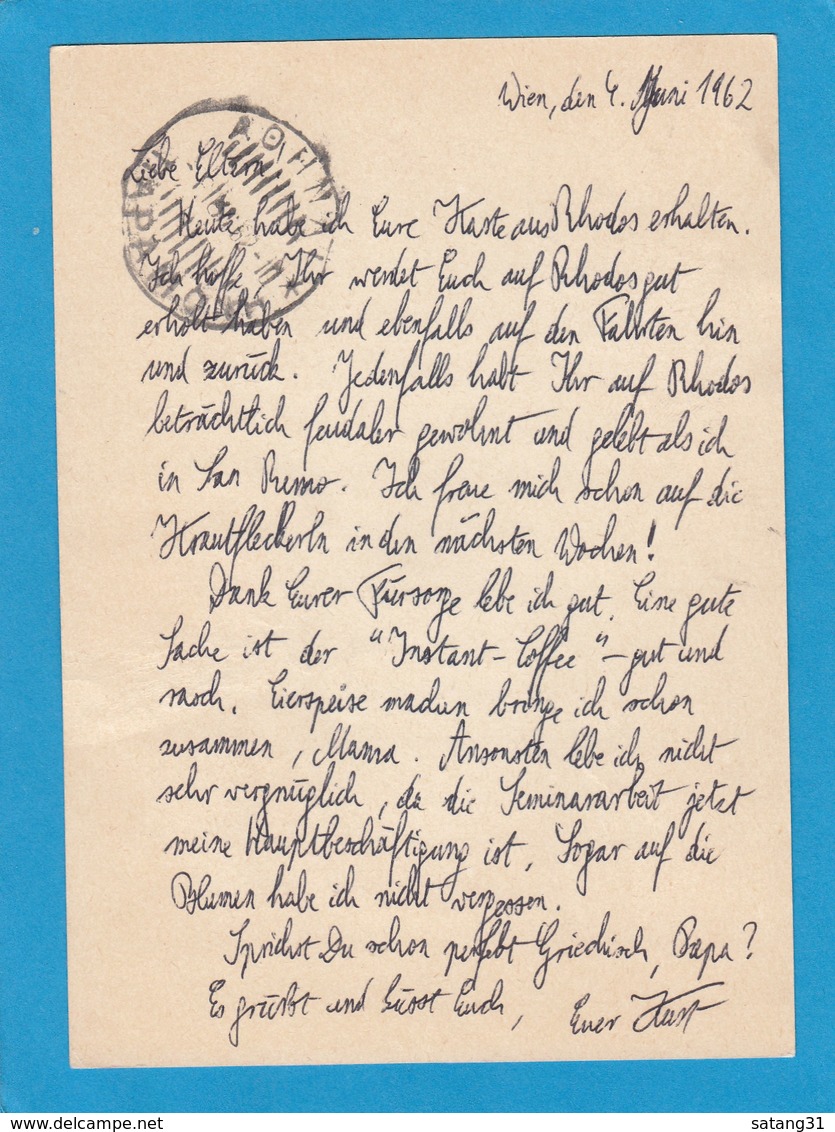 Wien, den 4. Juni 1962
Liebe Eltern!
Heute habe ich Eure Karte aus Rhodos erhalten.
Ich hoffe, Ihr werdet Euch auf Rhodos gut
erholt haben und ebenfalls auf den Fahrten hin
und zurück. Jedenfalls habt Ihr auf Rhodos
beträchtlich feudaler gewohnt und gelebt als ich
in San Remo. Ich freue mich schon auf die
Krautfleckerln in den nächsten Wochen!
Dank Eurer Fürsorge lebe ich gut. Eine gute
Sache ist der "Instant-Coffee" - gut und
rasch. Eierspeise machen bringe ich schon
zusammen, Mama. Ansonsten lebe ich nicht
sehr vergnüglich, da die Seminararbeit jetzt
meine Hauptbeschäftigung ist. Sogar auf die
Blumen habe ich nicht vergessen.
Sprichst Du schon perfekt Griechisch, Papa?
Es grüßt und küsst Euch, Euer Kurt
ΑΘΗΝΑΙ
satang31